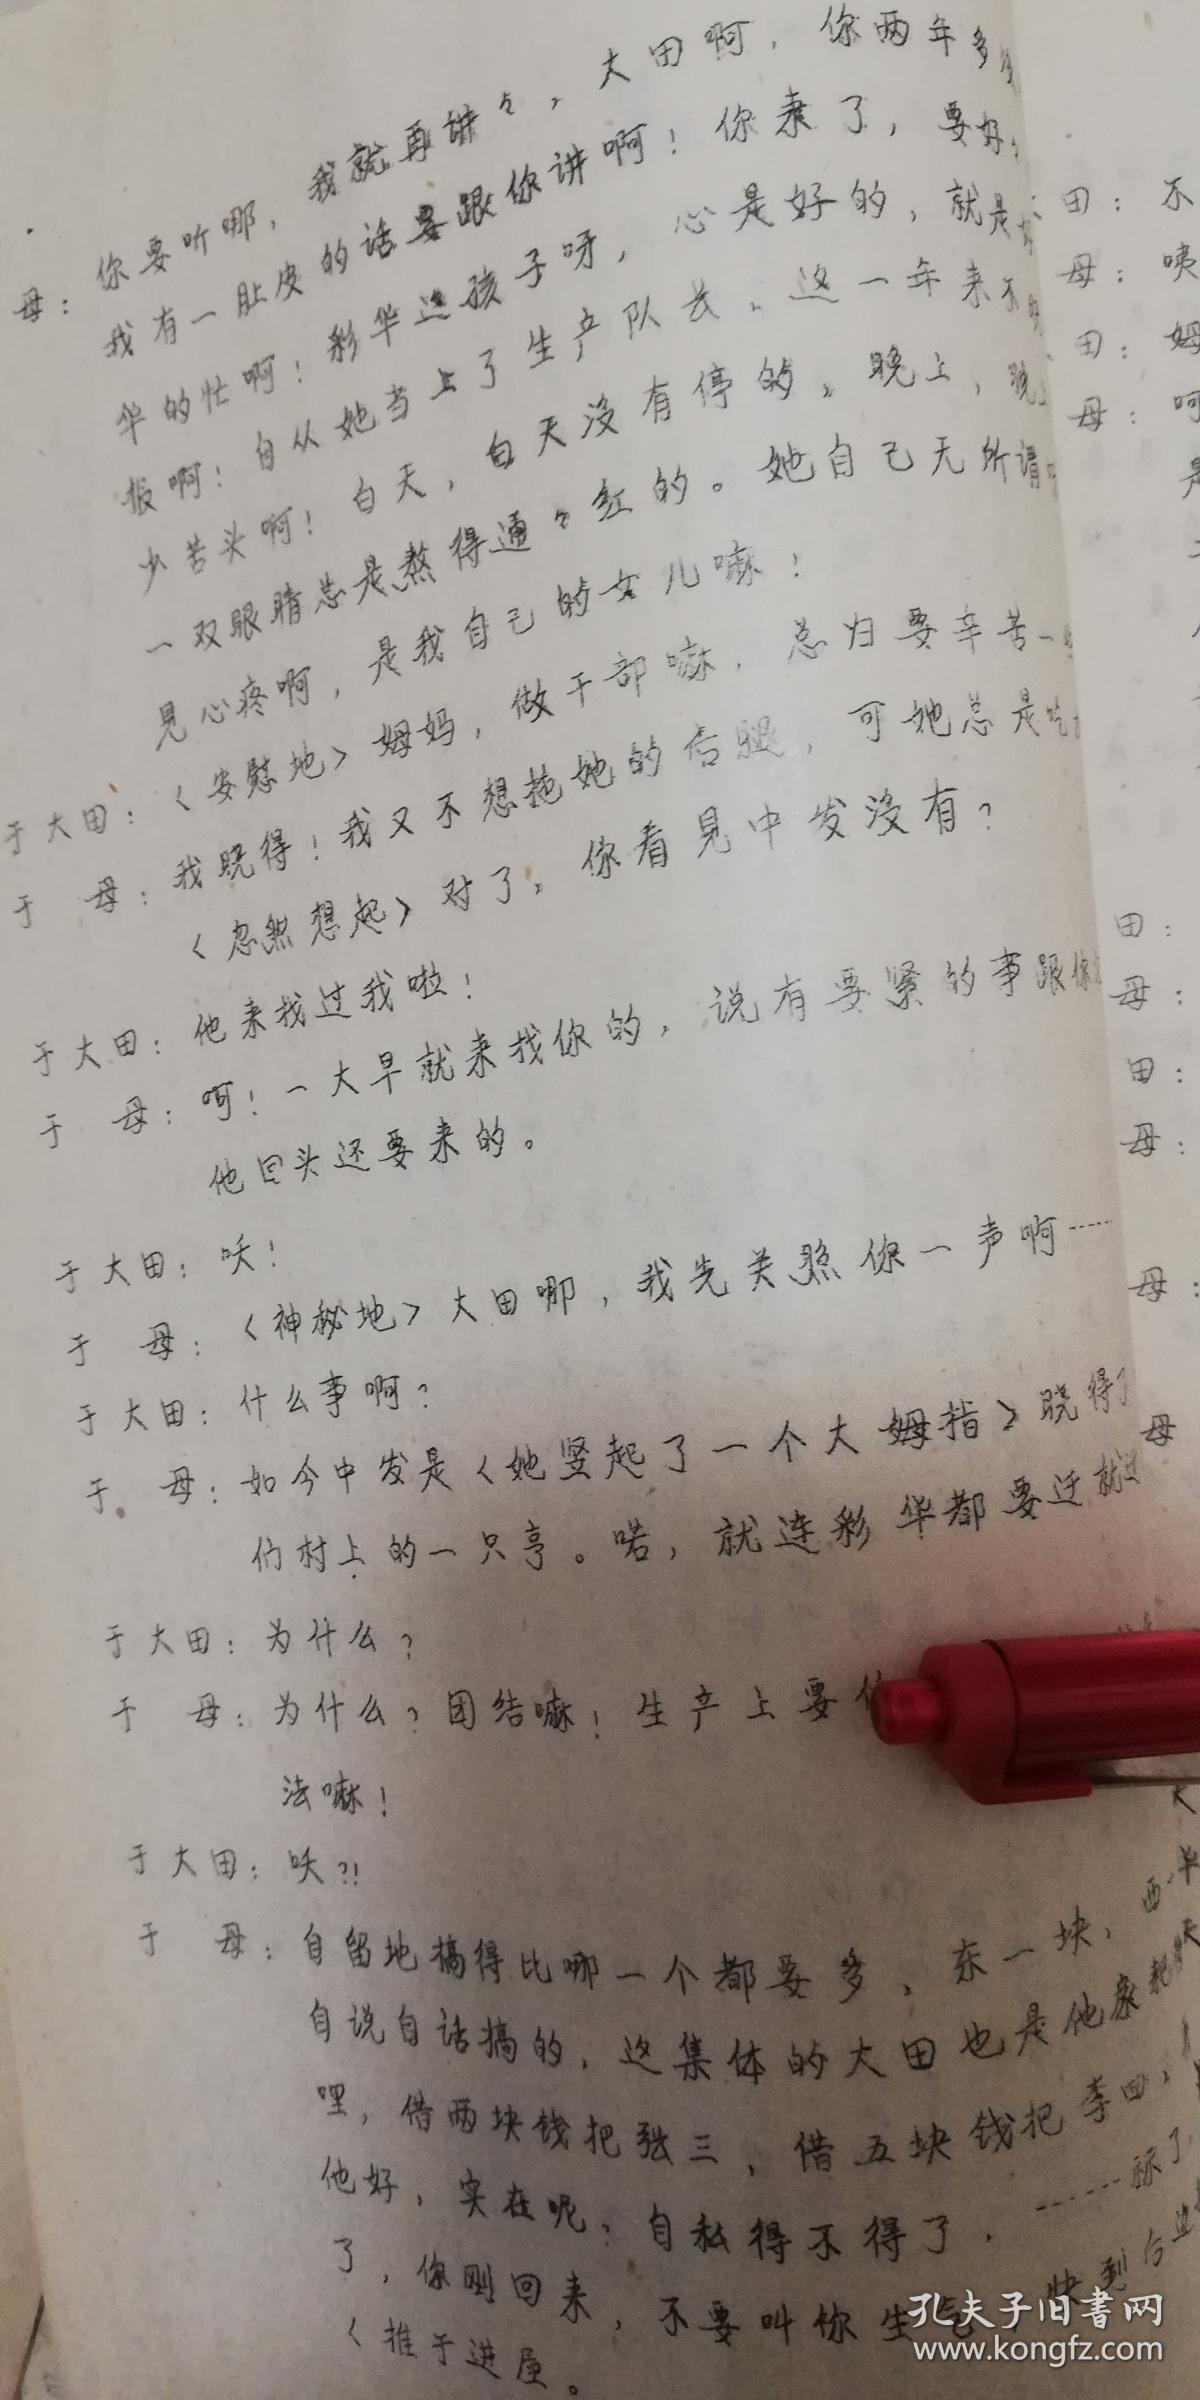 母：你要听哪，我就再讲々，大田啊，你两年多
我有一肚皮的话要跟你讲啊！你来了，要好
华的忙啊！彩华这孩子呀，心是好的，就是
报啊！自从她当上了生产队长，这一年来不
少苦头啊！白天，白天没有停的，晚上，晚上
一双眼睛总是熬得通々红的。她自己无所谓
见心疼啊，是我自己的女儿嘛！
于大田：〈安慰地〉姆妈，做干部嘛，总归要辛苦一
于 母：我晓得！我又不想拖她的后腿，可她总是吃
〈忽然想起〉对了，你看见中发没有？
于大田：他来找过我啦！
于 母：呵！一大早就来找你的，说有要紧的事跟你
他回头还要来的。
于大田：呒！
于 母：〈神秘地〉大田哪，我先关照你一声啊……
于大田：什么事啊？
于 母：如今中发是〈她竖起了一个大姆指〉晓得
们村上的一只亨。喏，就连彩华都要迁就
于大田：为什么？
于 母：为什么？团结嘛！生产上要
法嘛！
于大田：呒？!
于 母：自留地搞得比哪一个都要多，东一块，西一
自说自话搞的，这集体的大田也是他家
哩，借两块钱把张三，借五块钱把李四，
他好，实在呢，自私得不得了，……
了，你刚回来，不要叫你生气，快到
〈推于进屋。
田：不
母：咦
田：姆
母：呵
是
田：
母：
田：
母：
母：
母
孔夫子旧书网
www.kongfz.com